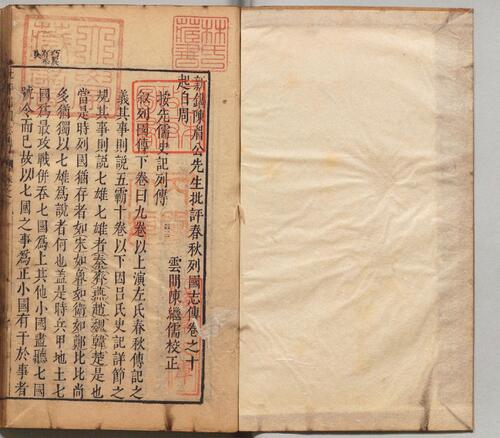 新鐫陳眉公先生批評春秋列國志傳卷之十
起自周
雲間陳繼儒校正
按先儒史記列傳
敘列國傳下卷曰九卷以上演左氏春秋傳記之
義其事則説五霸十卷以下因呂氏史記詳節之
規其事則説七雄七雄者秦齊燕趙魏韓楚是也
當是時列國猶存者如宋如魯如衛如鄭比比尚
多猶獨以七雄爲說者何也盖是時兵甲地土七
國爲最攻戰併吞七國爲上其他小國盡聽七國
號令而已故以七國之事爲正小國有干於事者
林氏藏書